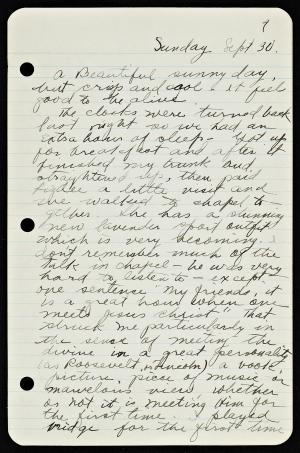 7
Sunday Sept 30.
A Beautiful sunny day,
but crisp and cool - it feels
good to be alive.
The clocks were turned back
last night so we had an
extra hour of sleep - Got up
for breakfast and after it
finished my trunk and
straightened up, then paid
a little visit and
we walked to chapel to-
gether. She has a stunning
new lavender sport outfit
which is very becoming. I
don't remember much of the
talk in chapel - he was very
hard to listen to - except
one sentence "My friends, it
is a great hour when one
meets Jesus Christ" That
struck me particularly in
the sense of meeting the
divine in a great personality
(as Roosevelt, or Lincoln) a book
picture, piece of music or
marvelous view whether
or not it is meeting Him for
the first time. Played
bridge for the first time